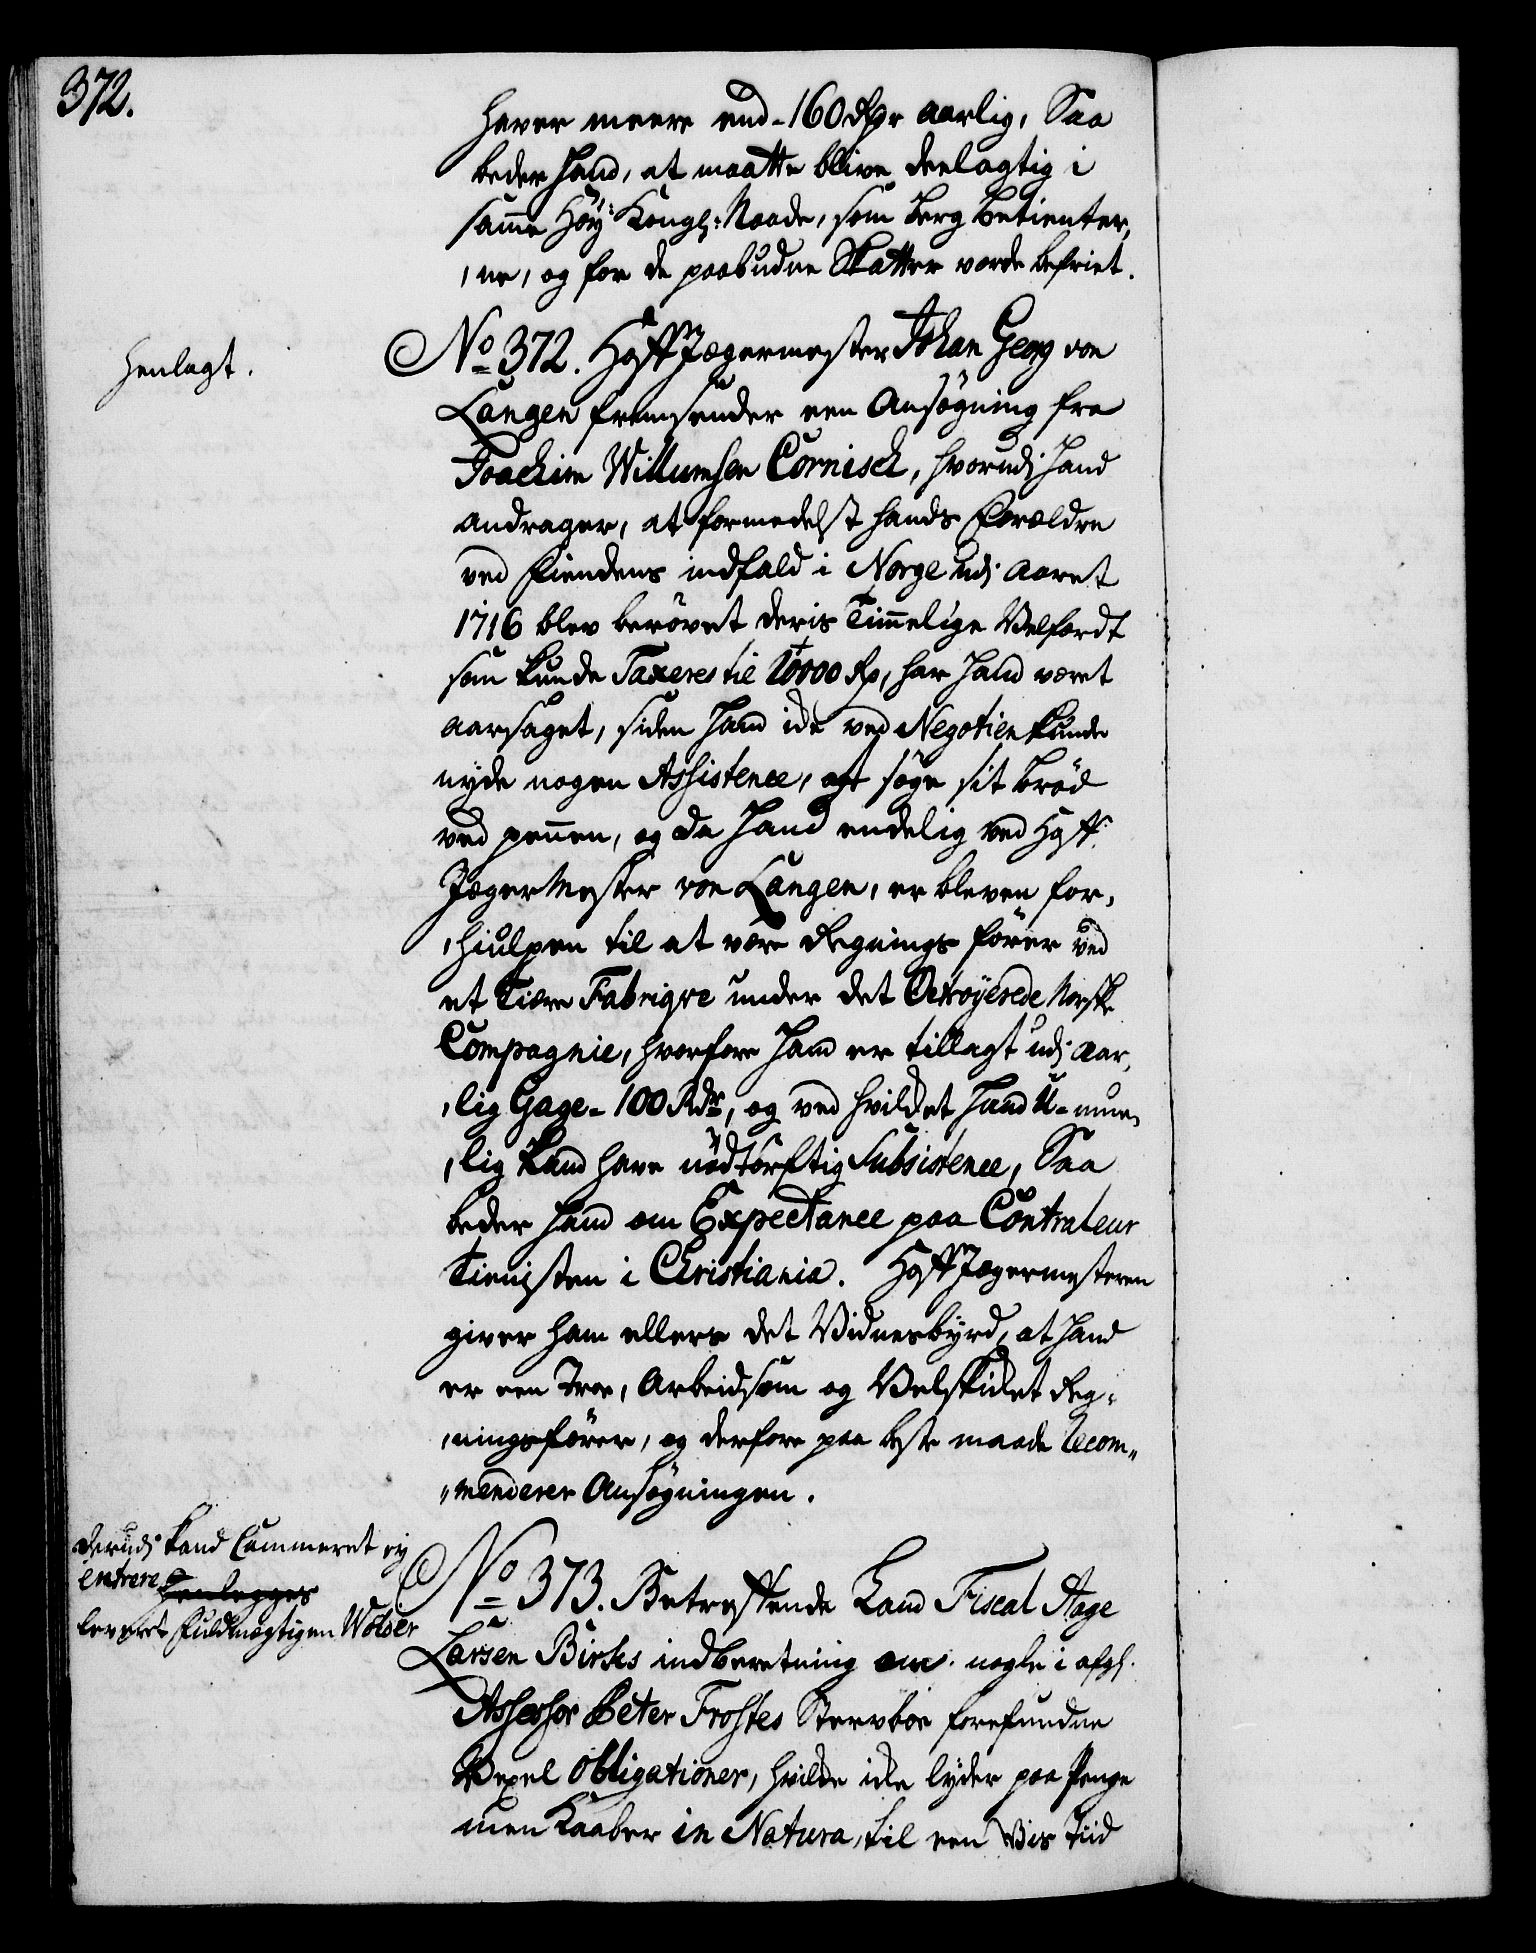 372.
haver meere end 160 Rdr aarlig, Saa
beder hand, at maatte blive deelagtig i
samme Høy: Kongl: Naade, som Berg betienter,
,,ne, og for de paabudne Skatter vorde befriet.
Henlagt.
No 372. HoffJægermester Johan Georg von
Langen fremsender een Ansøgning fra
Joachim Willumsen Cornisch, hvorudj hand
andrager, at formedelst hands Forældre
ved Fiendens indfald i Norge udj Aaret
1716 blev berøvet deris Timmelige Velfærdt
som kunde Taxeres til 10000 Rd, har hand været
aarsaget, siden hand icke ved Negotien kunde
nyde nogen Assistence, at søge sit brød
ved pennen, og da hand endelig ved Hoff
JægerMester von Langen, er bleven for,
,hiulpen til at være Regnings fører ved
et Tiære Fabrique under det Octroyerede Norske
Compagnie, hvorfore hand er tillagt udj Aar,
,lig Gage 100 Rdr, og ved hvilket hand U-mue,
,lig kand have nødtørftig Subsistence, Saa
beder hand om Expectance paa Contraleur
Tienisten i Christiania. HoffJægermesteren
giver ham ellers det Vidnesbyrd, at hand
er een Troe, Arbeidsom og Velskicket Reg,
,ningsfører, og derfore paa beste maade recom,,
,,menderer Ansøgningen.
derudj kand Cammeret ey
entrere
Henlegges
leveret Fuldmægtigen Wølser
No 373. Betreffende Land Fiscal Aage
Larsen Birchs indberetning om nogle i afgl.
Assessor Peter Frostes Stervboe forefundne
Vexel Obligationer, hvilke icke lyder paa Penge
men Kaaber in Natura, til een Vis Tiid